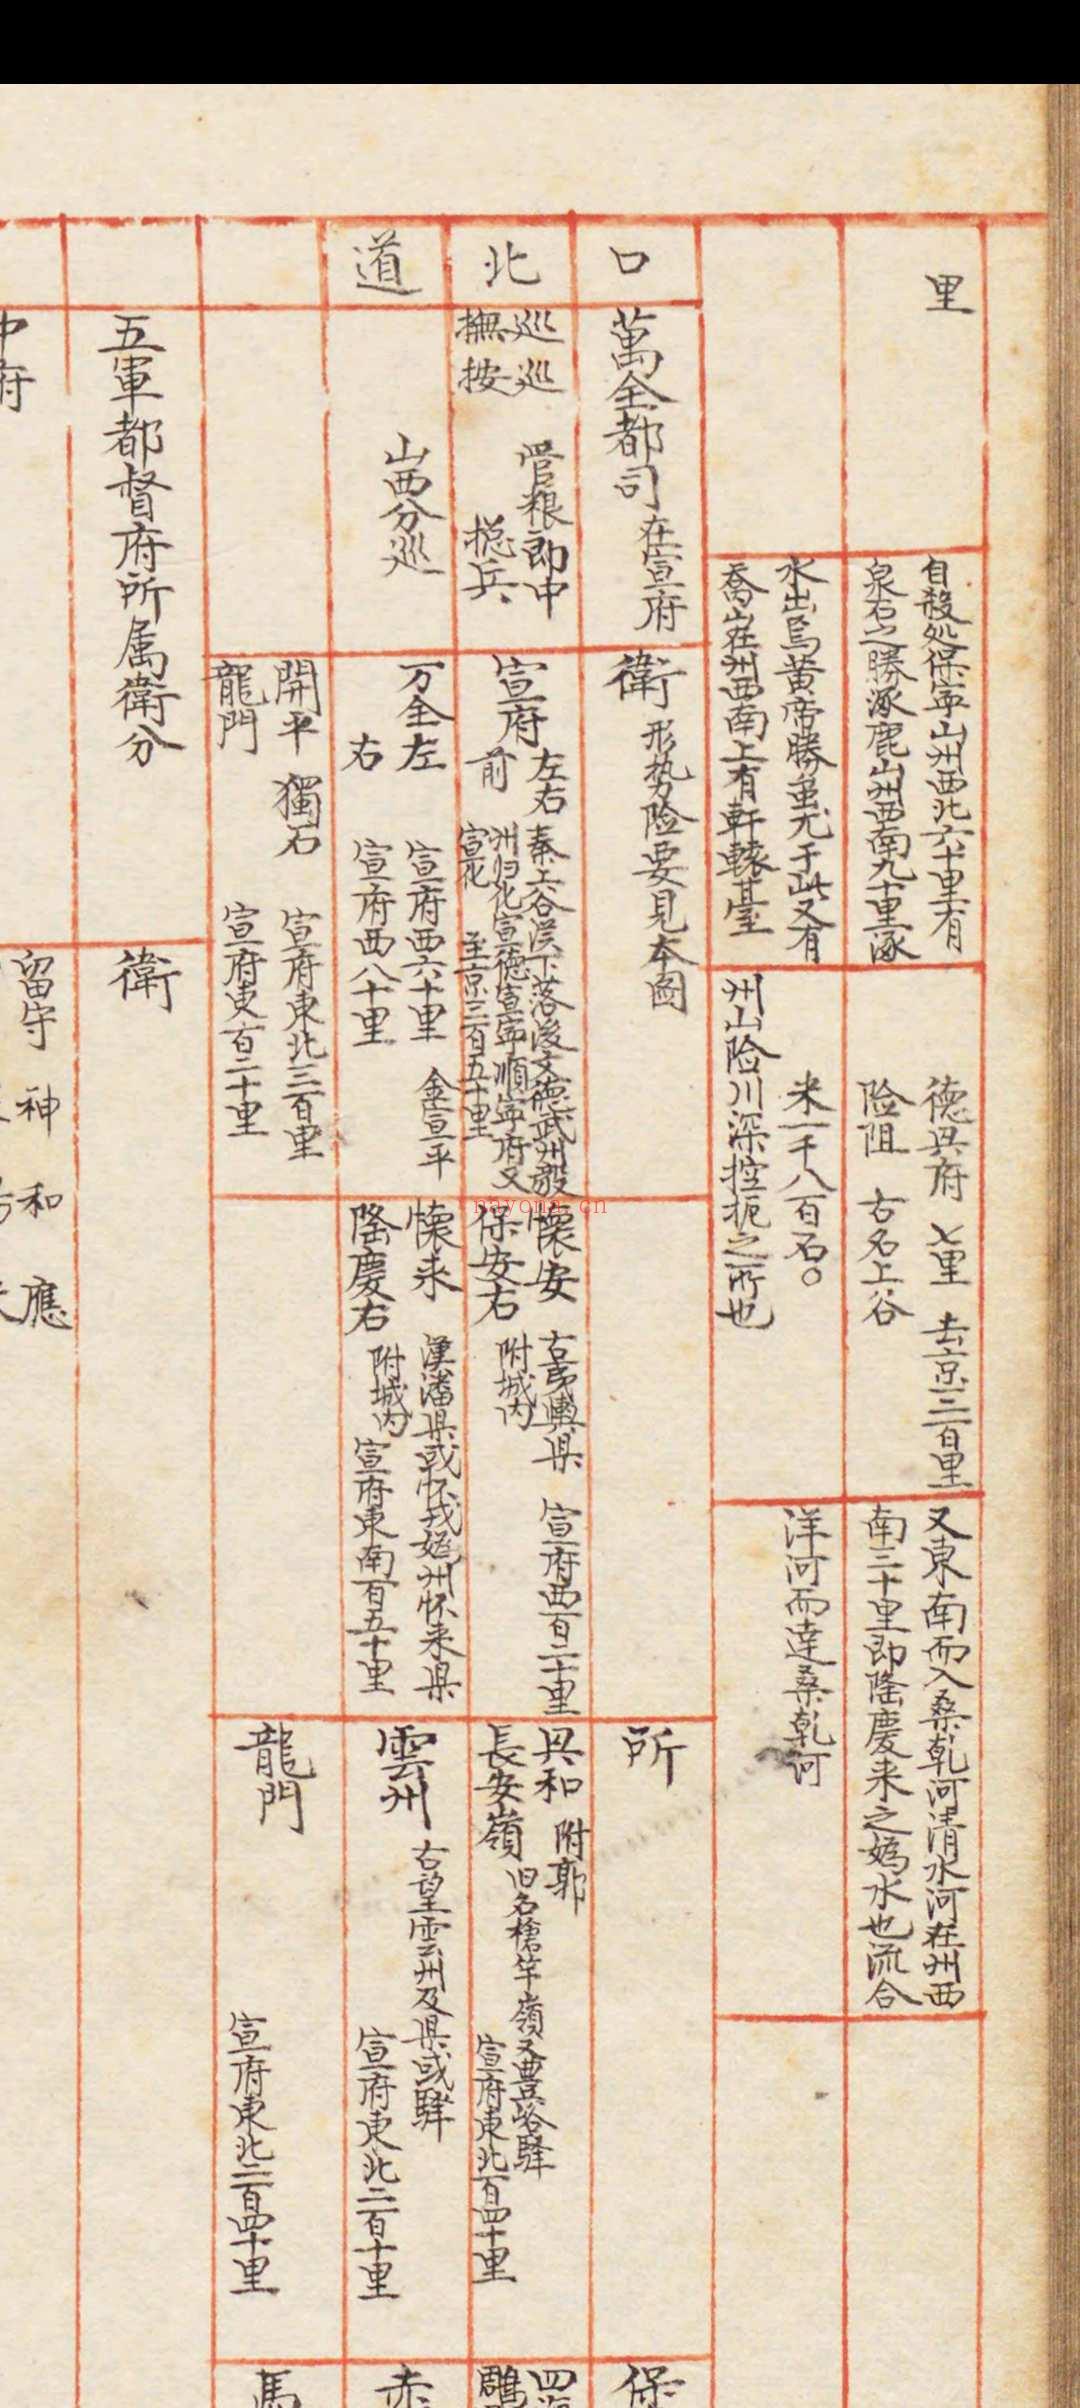 里
自殺処保寧山州西北六十里有
泉石之勝涿鹿山州西南九十里涿
水出焉黄帝勝蚩尤于此又有
喬山在州西南上有軒轅臺
德興府 七里 去京三百里
险阻 古名上谷
米一千八百石○
州山险川深控扼之所也
又東南而入桑乾河清水河在州西
南三十里即隆慶来之媯水也流合
洋河而達桑乾河
口北道
萬全都司 在宣府
巡巡
撫按
管粮郎中
摠兵
山西分巡
衛 形势险要見本図
宣府 左右
前
秦上谷漢下落後文德武州毅
州归化宣德宣寧順寧府又
宣化 至京三百五十里
万全左 宣府西六十里 金宣平
右 宣府西八十里
開平 獨石 宣府東北三百里
龍門 宣府東百二十里
懷安 古夷輿県 宣府西百二十里
保安右 附城内
懷来 漢潘県或怀戎媯州怀来県
隆慶右 附城内 宣府東南百五十里
所
興和 附郭
長安嶺 旧名槍竿嶺又豊峪驛
宣府東北百四十里
雲州 古望雲州及県或驛
宣府東北二百十里
龍門 宣府東北二百四十里
保
四海
鵰
赤
馬
五軍都督府所属衛分
衛
中府
留守 神和應
nayona.cn